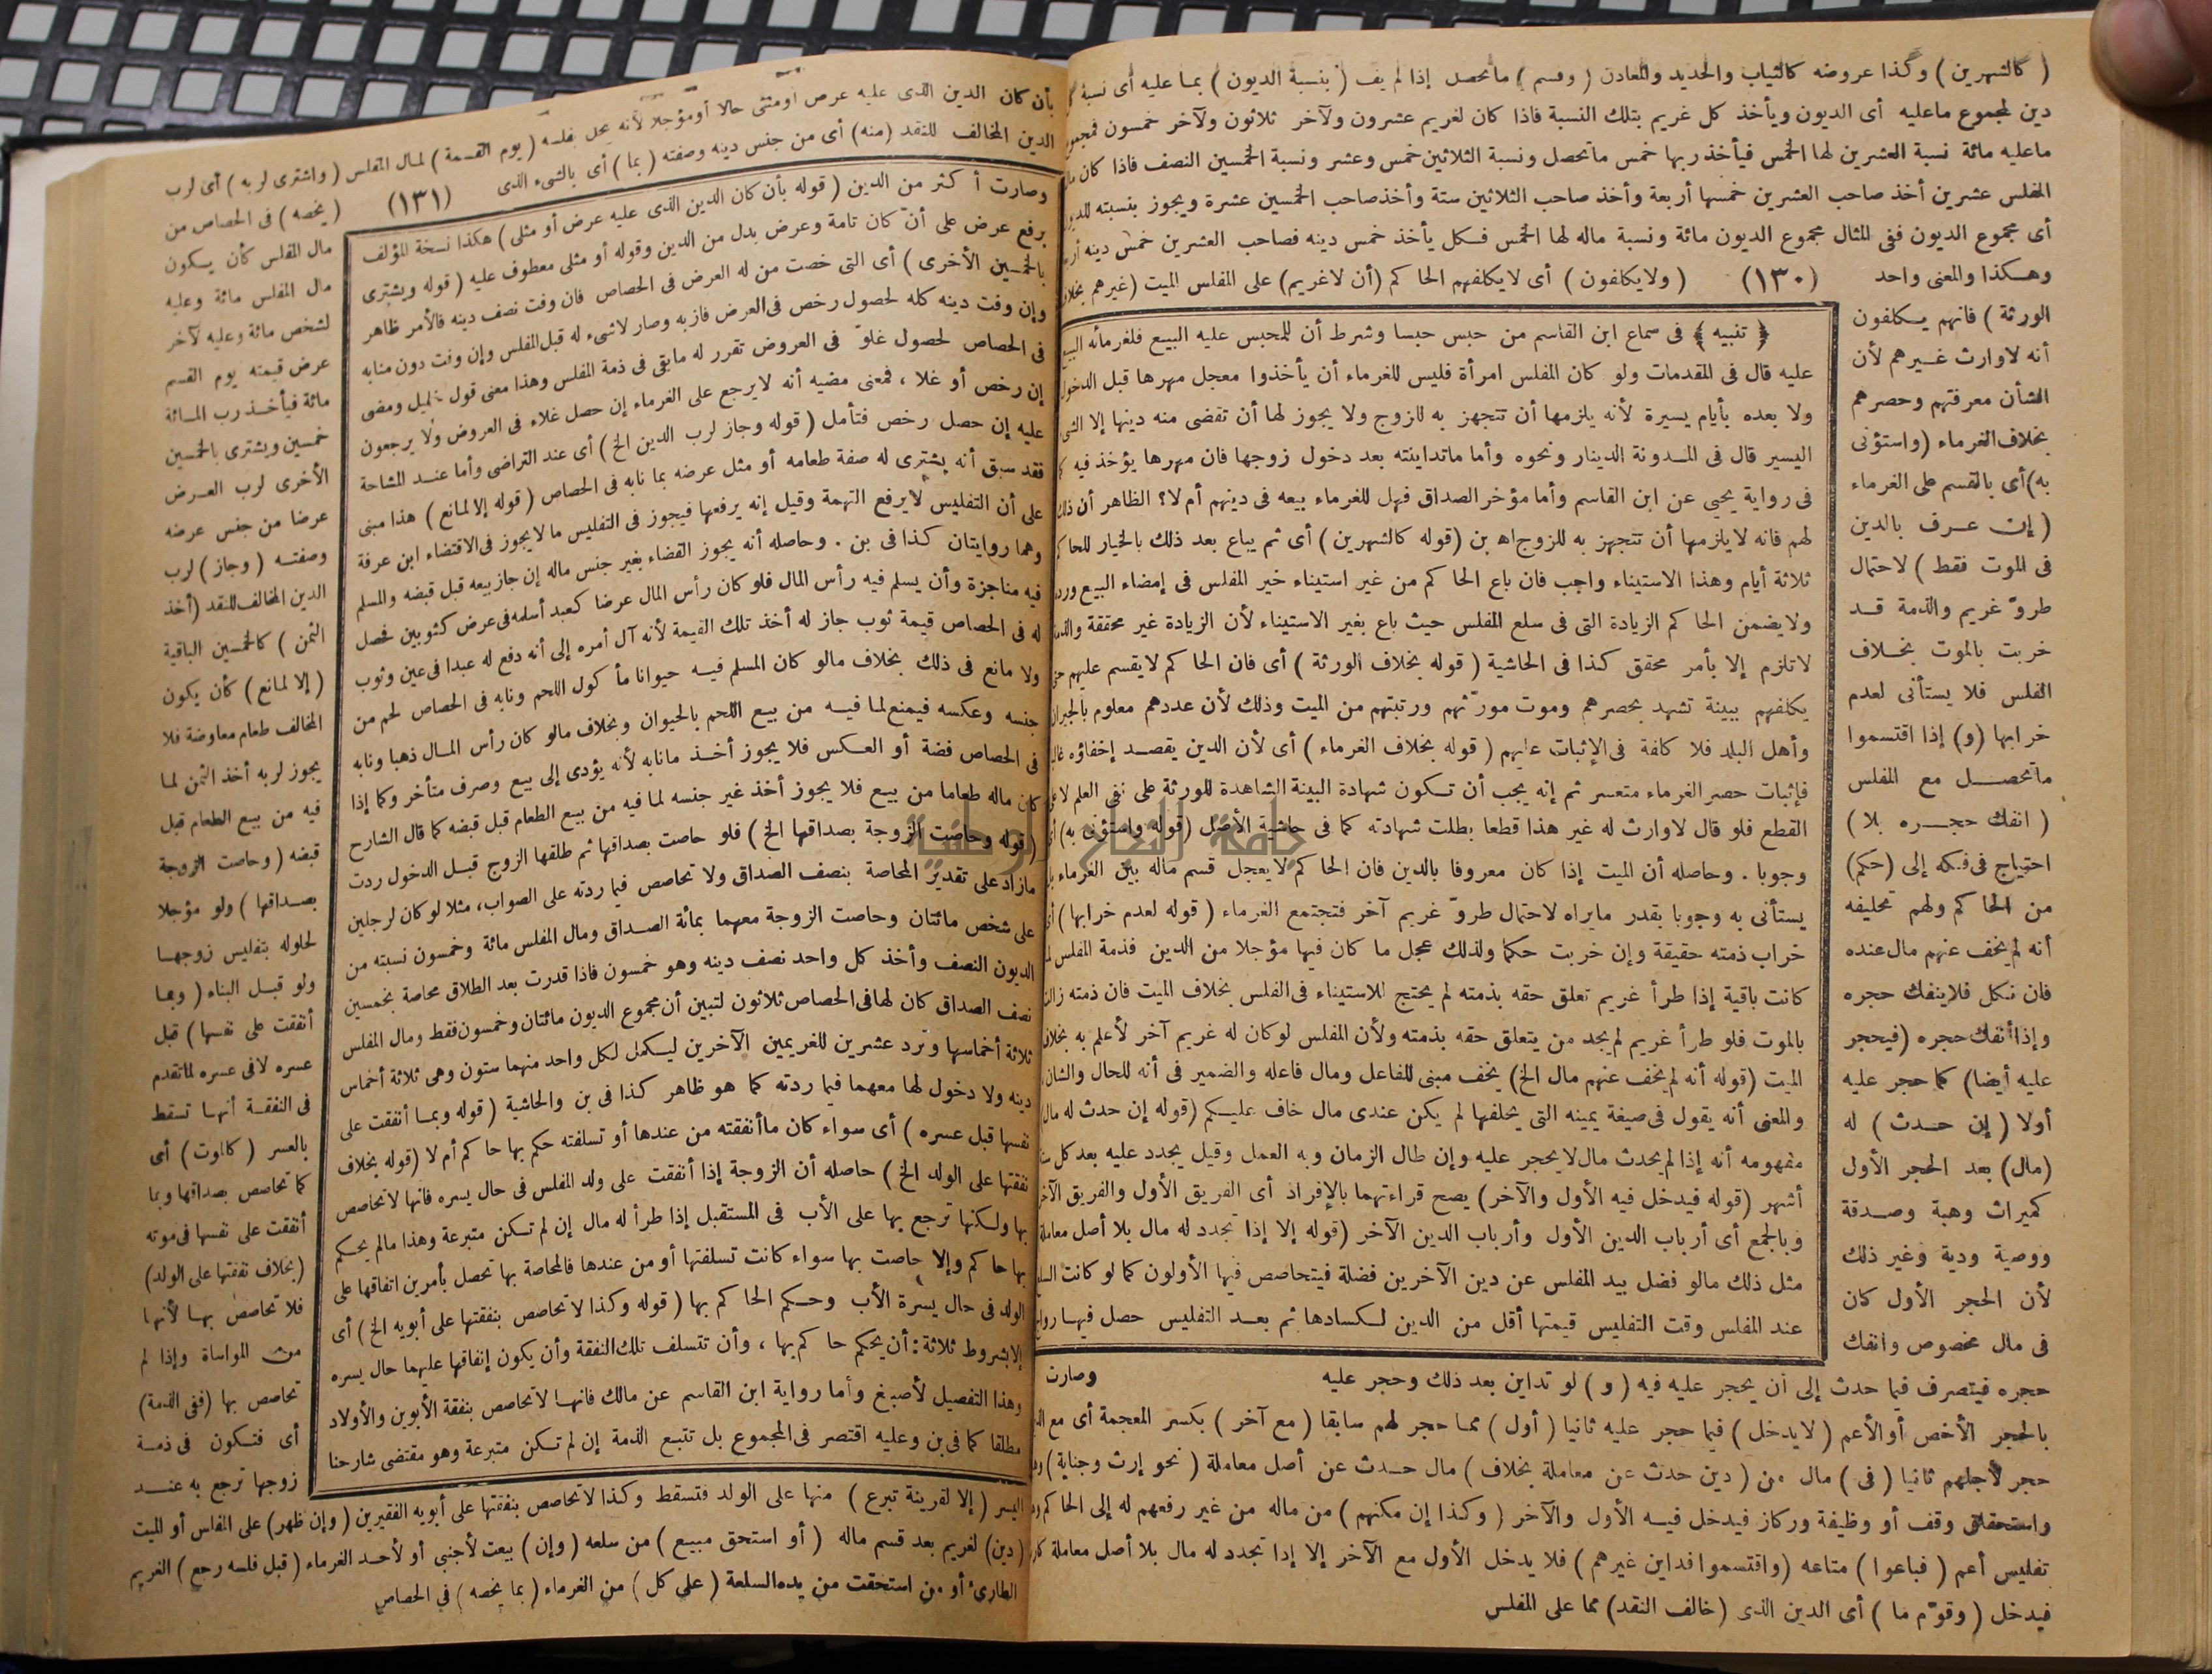 ( كالشهرين ) وكذا عروضه كالثياب والحديد والمعادن ( وقسم ) ماتحصل إذا لم يف ( بنسبة الديون ) بما عليه أى نسبة
دين لمجموع ماعليه أى الديون ويأخذ كل غريم بتلك النسبة فاذا كان لغريم عشرون ولآخر ثلاثون ولآخر خمسون فمجموع
ماعليه مائة نسبة العشرين لها الخمس فيأخذ ربها خمس ماتحصل ونسبة الثلاثين خمس وعشر ونسبة الخمسين النصف فاذا كان مال
المفلس عشرين أخذ صاحب العشرين خمسها أربعة وأخذ صاحب الثلاثين ستة وأخذ صاحب الخمسين عشرة ويجوز بنسبته للديون
أى مجموع الديون ففى المثال مجموع الديون مائة ونسبة ماله لها الخمس فكل يأخذ خمس دينه فصاحب العشرين خمس دينه
وهكذا والمعنى واحد (١٣٠) ( ولايكلفون ) أى لايكلفهم الحاكم (أن لاغريم) على المفلس الميت (غيرهم بخلاف
الورثة ) فانهم يكلفون
أنه لاوارث غيرهم لأن
الشأن معرفتهم وحصرهم
بخلاف الغرماء (واستؤنى
به) أى بالقسم على الغرماء
( إن عرف بالدين
فى الموت فقط ) لاحتمال
طروّ غريم والذمة قد
خربت بالموت بخلاف
الفلس فلا يستأنى لعدم
خرابها (و) إذا اقتسموا
ماتحصل مع المفلس
( انفك حجره بلا )
احتياج فى فكه إلى (حكم)
من الحاكم ولهم تحليفه
أنه لم يخف عنهم مال عنده
فان نكل فلاينفك حجره
وإذا أنفك حجره (فيحجر
عليه أيضا) كما حجر عليه
أولا ( إن حدث ) له
(مال) بعد الحجر الأول
كميراث وهبة وصدقة
ووصية ودية وغير ذلك
لأن الحجر الأول كان
فى مال مخصوص وانفك
﴿ تنبيه ﴾ فى سماع ابن القاسم من حبس حبسا وشرط أن للمحبس عليه البيع فلغرمائه البيع
عليه قال فى المقدمات ولو كان المفلس امرأة فليس للغرماء أن يأخذوا معجل مهرها قبل الدخول
ولا بعده بأيام يسيرة لأنه يلزمها أن تتجهز به للزوج ولا يجوز لها أن تقضى منه دينها إلا الشىء
اليسير قال فى المدونة الدينار ونحوه وأما ماتداينته بعد دخول زوجها فان مهرها يؤخذ فيه
فى رواية يحيى عن ابن القاسم وأما مؤخر الصداق فهل للغرماء بيعه فى دينهم أم لا؟ الظاهر أن ذلك
لهم فانه لايلزمها أن تتجهز به للزوج اه بن (قوله كالشهرين) أى ثم يباع بعد ذلك بالخيار للحاكم
ثلاثة أيام وهذا الاستيناء واجب فان باع الحاكم من غير استيناء خير المفلس فى إمضاء البيع ورده
ولايضمن الحاكم الزيادة التى فى سلع المفلس حيث باع بغير الاستيناء لأن الزيادة غير محققة والذمة
لاتلزم إلا بأمر محقق كذا فى الحاشية ( قوله بخلاف الورثة ) أى فان الحاكم لايقسم عليهم حتى
يكلفهم ببينة تشهد بحصرهم وموت مورّثهم ورتبتهم من الميت وذلك لأن عددهم معلوم بالجيران
وأهل البلد فلا كلفة فى الإثبات عليهم ( قوله بخلاف الغرماء ) أى لأن الدين يقصد إخفاؤه غالبا
فإثبات حصر الغرماء متعسر ثم إنه يجب أن تكون شهادة البينة الشاهدة للورثة على نفى العلم لاعلى
القطع فلو قال لاوارث له غير هذا قطعا بطلت شهادته كما فى حاشية الأصل (قوله واستؤنى به) أى
وجوبا . وحاصله أن الميت إذا كان معروفا بالدين فان الحاكم لايعجل قسم ماله بين الغرماء بل
يستأنى به وجوبا بقدر مايراه لاحتمال طروّ غريم آخر فتجتمع الغرماء ( قوله لعدم خرابها ) أى
خراب ذمته حقيقة وإن خربت حكما ولذلك عجل ما كان فيها مؤجلا من الدين فذمة المفلس لما
كانت باقية إذا طرأ غريم تعلق حقه بذمته لم يحتج للاستيناء فى الفلس بخلاف الميت فان ذمته زالت
بالموت فلو طرأ غريم لم يجد من يتعلق حقه بذمته ولأن المفلس لوكان له غريم آخر لأعلم به بخلاف
الميت (قوله أنه لم يخف عنهم مال الخ) يخف مبنى للفاعل ومال فاعله والضمير فى أنه للحال والشان
والمعنى أنه يقول فى صيغة يمينه التى يحلفها لم يكن عندى مال خاف عليكم (قوله إن حدث له مال)
مفهومه أنه إذا لم يحدث مال لايحجر عليه وإن طال الزمان وبه العمل وقيل يجدد عليه بعد كل ستة
أشهر (قوله فيدخل فيه الأول والآخر) يصح قراءتهما بالإفراد أى الفريق الأول والفريق الآخر
وبالجمع أى أرباب الدين الأول وأرباب الدين الآخر (قوله إلا إذا تجدد له مال بلا أصل معاملة
مثل ذلك مالو فضل بيد المفلس عن دين الآخرين فضلة فيتحاصص فيها الأولون كما لو كانت السلع
عند المفلس وقت التفليس قيمتها أقل من الدين لكسادها ثم بعد التفليس حصل فيها رواج
وصارت
حجره فيتصرف فيما حدث إلى أن يحجر عليه فيه ( و ) لو تداين بعد ذلك وحجر عليه
بالحجر الأخص أو الأعم ( لايدخل ) فيما حجر عليه ثانيا ( أول ) مما حجر لهم سابقا ( مع آخر ) بكسر المعجمة أى مع
حجر لأجلهم ثانيا ( فى ) مال من ( دين حدث عن معاملة بخلاف ) مال حدث عن أصل معاملة ( نحو إرث وجناية )
واستحقاق وقف أو وظيفة وركاز فيدخل فيه الأول والآخر ( وكذا إن مكنهم ) من ماله من غير رفعهم له إلى الحاكم
تفليس أعم ( فباعوا ) متاعه (واقتسموا فداين غيرهم ) فلا يدخل الأول مع الآخر إلا إذا تجدد له مال بلا أصل معاملة
فيدخل ( وقوّم ما ) أى الدين الذى (خالف النقد) مما على المفلس
بأن كان الدين الذى عليه عرض أومثلى حالا أومؤجلا لأنه يحل بفلسه (يوم القسمة) لمال المفلس ( واشترى لربه ) أى لرب
الدين المخالف للنقد (منه) أى من جنس دينه وصفته ( بما ) أى بالشىء الذى (١٣١) ( يخصه ) فى الحصاص من
مال المفلس كأن يكون
مال المفلس مائة وعليه
لشخص مائة وعليه لآخر
عرض قيمته يوم القسم
مائة فيأخذ رب المائة
خمسين ويشترى بالخمسين
الأخرى لرب العرض
عرضا من جنس عرضه
وصفته ( وجاز ) لرب
الدين المخالف للنقد (أخذ
الثمن ) كالخمسين الباقية
( إلا لمانع ) كأن يكون
المخالف طعام معاوضة فلا
يجوز لربه أخذ الثمن لما
فيه من بيع الطعام قبل
قبضه ( وحاصت الزوجة
بصداقها ) ولو مؤجلا
لحلوله بتفليس زوجها
ولو قبل البناء ( وبما
أنفقت على نفسها ) قبل
عسره لافى عسره لماتقدم
فى النفقة أنها تسقط
بالعسر ( كالموت ) أى
كما تحاصص بصداقها وبما
أنفقت على نفسها فى موته
(بخلاف نفقتها على الولد)
فلا تحاصص بها لأنها
من المواساة وإذا لم
تحاصص بها (ففى الذمة)
أى فتكون فى ذمة
زوجها ترجع به عند
وصارت أكثر من الدين ( قوله بأن كان الدين الذى عليه عرض أو مثلى ) هكذا نسخة المؤلف
برفع عرض على أنّ كان تامة وعرض بدل من الدين وقوله أو مثلى معطوف عليه ( قوله ويشترى
بالخمسين الأخرى ) أى التى خصت من له العرض فى الحصاص فان وفت نصف دينه فالأمر ظاهر
وإن وفت دينه كله لحصول رخص فى العرض فازبه وصار لاشىء له قبل المفلس وإن وفت دون منابه
فى الحصاص لحصول غلوّ فى العروض تقرر له مابقى فى ذمة المفلس وهذا معنى قول خليل ومضى
إن رخص أو غلا ، فمعنى مضيه أنه لايرجع على الغرماء إن حصل غلاء فى العروض ولا يرجعون
عليه إن حصل رخص فتأمل ( قوله وجاز لرب الدين الخ ) أى عند التراضى وأما عند المشاحة
فقد سبق أنه يشترى له صفة طعامه أو مثل عرضه بما نابه فى الحصاص ( قوله إلا لمانع ) هذا مبنى
على أن التفليس لايرفع التهمة وقيل إنه يرفعها فيجوز فى التفليس ما لايجوز فى الاقتضاء ابن عرفة
وهما روايتان كذا فى بن . وحاصله أنه يجوز القضاء بغير جنس ماله إن جاز بيعه قبل قبضه والمسلم
فيه مناجزة وأن يسلم فيه رأس المال فلو كان رأس المال عرضا كعبد أسلمه فى عرض كثوبين فحصل
له فى الحصاص قيمة ثوب جاز له أخذ تلك القيمة لأنه آل أمره إلى أنه دفع له عبدا فى عين وثوب
ولا مانع فى ذلك بخلاف مالو كان المسلم فيه حيوانا مأكول اللحم ونابه فى الحصاص لحم من
جنسه وعكسه فيمنع لما فيه من بيع اللحم بالحيوان وبخلاف مالو كان رأس المال ذهبا ونابه
فى الحصاص فضة أو العكس فلا يجوز أخذ مانابه لأنه يؤدى إلى بيع وصرف متأخر وكما إذا
كان ماله طعاما من بيع فلا يجوز أخذ غير جنسه لما فيه من بيع الطعام قبل قبضه كما قال الشارح
(قوله وحاصت الزوجة بصداقها الخ ) فلو حاصت بصداقها ثم طلقها الزوج قبل الدخول ردت
مازاد على تقدير المحاصة بنصف الصداق ولا تحاصص فيما ردته على الصواب، مثلا لو كان لرجلين
على شخص مائتان وحاصت الزوجة معهما بمائة الصداق ومال المفلس مائة وخمسون نسبته من
الديون النصف وأخذ كل واحد نصف دينه وهو خمسون فاذا قدرت بعد الطلاق محاصة بخمسين
نصف الصداق كان لها فى الحصاص ثلاثون لتبين أن مجموع الديون مائتان وخمسون فقط ومال المفلس
ثلاثة أخماسها وترد عشرين للغريمين الآخرين ليكمل لكل واحد منهما ستون وهى ثلاثة أخماس
دينه ولا دخول لها معهما فيما ردته كما هو ظاهر كذا فى بن والحاشية ( قوله وبما أنفقت على
نفسها قبل عسره ) أى سواء كان ماأنفقته من عندها أو تسلفته حكم بها حاكم أم لا (قوله بخلاف
نفقتها على الولد الخ ) حاصله أن الزوجة إذا أنفقت على ولد المفلس فى حال يسره فانها لاتحاصص
بها ولكنها ترجع بها على الأب فى المستقبل إذا طرأ له مال إن لم تكن متبرعة وهذا مالم يحكم
بها حاكم وإلا حاصت بها سواء كانت تسلفتها أو من عندها فالمحاصة بها تحصل بأمرين انفاقها على
الولد فى حال يسرة الأب وحكم الحاكم بها ( قوله وكذا لاتحاصص بنفقتها على أبويه الخ ) أى
إلابشروط ثلاثة: أن يحكم حاكم بها ، وأن تتسلف تلك النفقة وأن يكون إنفاقها عليهما حال يسره
وهذا التفصيل لأصبغ وأما رواية ابن القاسم عن مالك فانها لاتحاصص بنفقة الأبوين والأولاد
مطلقا كما فى بن وعليه اقتصر فى المجموع بل تتبع الذمة إن لم تكن متبرعة وهو مقتضى شارحنا
اليسر ( إلا لقرينة تبرع ) منها على الولد فتسقط وكذا لاتحاصص بنفقتها على أبويه الفقيرين ( وإن ظهر) على المفلس أو الميت
(دين) لغريم بعد قسم ماله ( أو استحق مبيع ) من سلعه ( وإن ) بيعت لأجنبى أو لأحد الغرماء ( قبل فلسه رجع ) الغريم
الطارئ أو من استحقت من يده السلعة ( على كل ) من الغرماء ( بما يخصه ) فى الحصاص
جامعة النجاح الوطنية